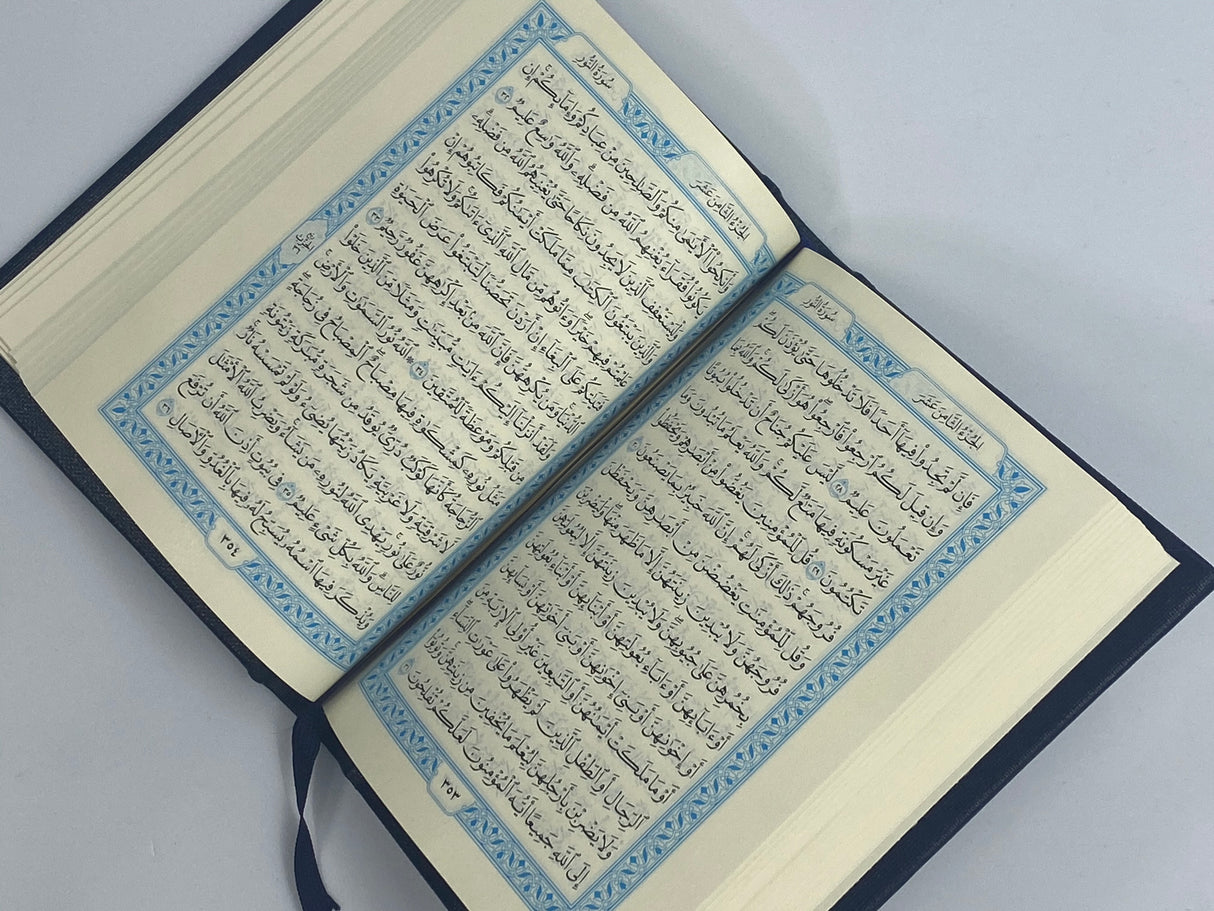 سُورَةُ النُّورِ
الجُزْءُ الثَّامِنَ عَشَرَ
فَإِن لَّمْ تَجِدُوا۟ فِيهَآ أَحَدًا فَلَا تَدْخُلُوهَا حَتَّىٰ يُؤْذَنَ لَكُمْ
وَإِن قِيلَ لَكُمُ ٱرْجِعُوا۟ فَٱرْجِعُوا۟ هُوَ أَزْكَىٰ لَكُمْ وَٱللَّهُ بِمَا
تَعْمَلُونَ عَلِيمٌ ٢٨ لَّيْسَ عَلَيْكُمْ جُنَاحٌ أَن تَدْخُلُوا۟ بُيُوتًا
غَيْرَ مَسْكُونَةٍ فِيهَا مَتَٰعٌ لَّكُمْ وَٱللَّهُ يَعْلَمُ مَا تُبْدُونَ وَمَا
تَكْتُمُونَ ٢٩ قُل لِّلْمُؤْمِنِينَ يَغُضُّوا۟ مِنْ أَبْصَٰرِهِمْ وَيَحْفَظُوا۟
فُرُوجَهُمْ ذَٰلِكَ أَزْكَىٰ لَهُمْ إِنَّ ٱللَّهَ خَبِيرٌۢ بِمَا يَصْنَعُونَ ٣٠
وَقُل لِّلْمُؤْمِنَٰتِ يَغْضُضْنَ مِنْ أَبْصَٰرِهِنَّ وَيَحْفَظْنَ
فُرُوجَهُنَّ وَلَا يُبْدِينَ زِينَتَهُنَّ إِلَّا مَا ظَهَرَ مِنْهَا وَلْيَضْرِبْنَ
بِخُمُرِهِنَّ عَلَىٰ جُيُوبِهِنَّ وَلَا يُبْدِينَ زِينَتَهُنَّ إِلَّا لِبُعُولَتِهِنَّ
أَوْ ءَابَآئِهِنَّ أَوْ ءَابَآءِ بُعُولَتِهِنَّ أَوْ أَبْنَآئِهِنَّ أَوْ أَبْنَآءِ بُعُولَتِهِنَّ
أَوْ إِخْوَٰنِهِنَّ أَوْ بَنِىٓ إِخْوَٰنِهِنَّ أَوْ بَنِىٓ أَخَوَٰتِهِنَّ أَوْ نِسَآئِهِنَّ
أَوْ مَا مَلَكَتْ أَيْمَٰنُهُنَّ أَوِ ٱلتَّٰبِعِينَ غَيْرِ أُو۟لِى ٱلْإِرْبَةِ مِنَ
ٱلرِّجَالِ أَوِ ٱلطِّفْلِ ٱلَّذِينَ لَمْ يَظْهَرُوا۟ عَلَىٰ عَوْرَٰتِ ٱلنِّسَآءِ
وَلَا يَضْرِبْنَ بِأَرْجُلِهِنَّ لِيُعْلَمَ مَا يُخْفِينَ مِن زِينَتِهِنَّ وَتُوبُوٓا۟
إِلَى ٱللَّهِ جَمِيعًا أَيُّهَ ٱلْمُؤْمِنُونَ لَعَلَّكُمْ تُفْلِحُونَ ٣١
٣٥٣
سُورَةُ النُّورِ
الجُزْءُ الثَّامِنَ عَشَرَ
وَأَنكِحُوا۟ ٱلْأَيَٰمَىٰ مِنكُمْ وَٱلصَّٰلِحِينَ مِنْ عِبَادِكُمْ وَإِمَآئِكُمْ إِن
يَكُونُوا۟ فُقَرَآءَ يُغْنِهِمُ ٱللَّهُ مِن فَضْلِهِۦ وَٱللَّهُ وَٰسِعٌ عَلِيمٌ ٣٢
وَلْيَسْتَعْفِفِ ٱلَّذِينَ لَا يَجِدُونَ نِكَاحًا حَتَّىٰ يُغْنِيَهُمُ ٱللَّهُ مِن فَضْلِهِۦ
وَٱلَّذِينَ يَبْتَغُونَ ٱلْكِتَٰبَ مِمَّا مَلَكَتْ أَيْمَٰنُكُمْ فَكَاتِبُوهُمْ إِنْ
عَلِمْتُمْ فِيهِمْ خَيْرًا وَءَاتُوهُم مِّن مَّالِ ٱللَّهِ ٱلَّذِىٓ ءَاتَىٰكُمْ وَلَا تُكْرِهُوا۟
فَتَيَٰتِكُمْ عَلَى ٱلْبِغَآءِ إِنْ أَرَدْنَ تَحَصُّنًا لِّتَبْتَغُوا۟ عَرَضَ ٱلْحَيَوٰةِ
ٱلدُّنْيَا وَمَن يُكْرِههُّنَّ فَإِنَّ ٱللَّهَ مِنۢ بَعْدِ إِكْرَٰهِهِنَّ غَفُورٌ رَّحِيمٌ ٣٣
وَلَقَدْ أَنزَلْنَآ إِلَيْكُمْ ءَايَٰتٍ مُّبَيِّنَٰتٍ وَمَثَلًا مِّنَ ٱلَّذِينَ خَلَوْا۟
مِن قَبْلِكُمْ وَمَوْعِظَةً لِّلْمُتَّقِينَ ٣٤ ۞ ٱللَّهُ نُورُ ٱلسَّمَٰوَٰتِ وَٱلْأَرْضِ
مَثَلُ نُورِهِۦ كَمِشْكَوٰةٍ فِيهَا مِصْبَاحٌ ٱلْمِصْبَاحُ فِى زُجَاجَةٍ
ٱلزُّجَاجَةُ كَأَنَّهَا كَوْكَبٌ دُرِّىٌّ يُوقَدُ مِن شَجَرَةٍ مُّبَٰرَكَةٍ زَيْتُونَةٍ
لَّا شَرْقِيَّةٍ وَلَا غَرْبِيَّةٍ يَكَادُ زَيْتُهَا يُضِىٓءُ وَلَوْ لَمْ تَمْسَسْهُ نَارٌ
نُّورٌ عَلَىٰ نُورٍ يَهْدِى ٱللَّهُ لِنُورِهِۦ مَن يَشَآءُ وَيَضْرِبُ ٱللَّهُ ٱلْأَمْثَٰلَ
لِلنَّاسِ وَٱللَّهُ بِكُلِّ شَىْءٍ عَلِيمٌ ٣٥ فِى بُيُوتٍ أَذِنَ ٱللَّهُ أَن تُرْفَعَ
وَيُذْكَرَ فِيهَا ٱسْمُهُۥ يُسَبِّحُ لَهُۥ فِيهَا بِٱلْغُدُوِّ وَٱلْءَاصَالِ ٣٦
٣٥٤